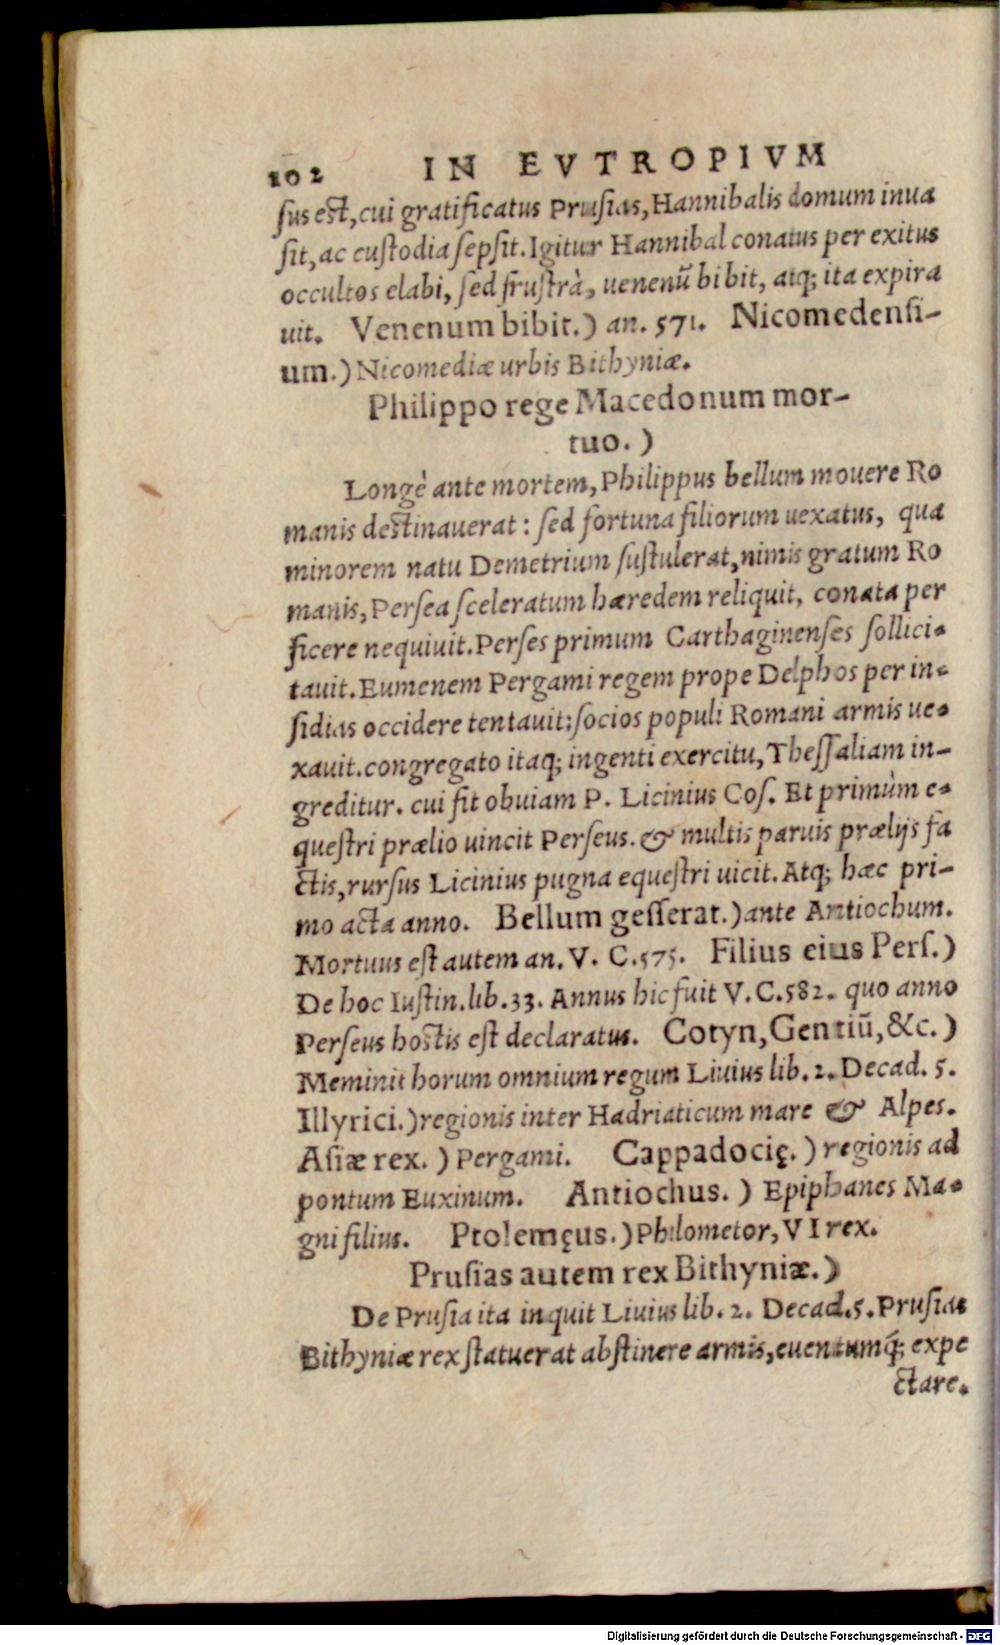 102 IN EVTROPIVM
sus est, cui gratificatus Prusias, Hannibalis domum inua
sit, ac custodia sepsit. Igitur Hannibal conatus per exitus
occultos elabi, sed frustrà, uenenũ bibit, atq; ita expira
uit. Venenum bibit.) an. 571. Nicomedensi-
um.) Nicomediæ urbis Bithyniæ.
Philippo rege Macedonum mor-
tuo.)
Longè ante mortem, Philippus bellum mouere Ro
manis destinauerat: sed fortuna filiorum uexatus, qua
minorem natu Demetrium sustulerat, nimis gratum Ro
manis, Persea sceleratum hæredem reliquit, conata per
ficere nequiuit. Perses primum Carthaginenses sollici-
tauit. Eumenem Pergami regem prope Delphos per in-
sidias occidere tentauit: socios populi Romani armis ue-
xauit. congregato itaq; ingenti exercitu, Thessaliam in-
greditur. cui fit obuiam P. Licinius Cos. Et primùm e-
questri prælio uincit Perseus. & multis paruis prælijs fa
ctis, rursus Licinius pugna equestri uicit. Atq; hæc pri-
mo acta anno. Bellum gesserat.) ante Antiochum.
Mortuus est autem an. V. C. 575. Filius eius Pers.)
De hoc Iustin. lib. 33. Annus hic fuit V. C. 582. quo anno
Perseus hostis est declaratus. Cotyn, Gentiũ, &c.)
Meminit horum omnium regum Liuius lib. 2. Decad. 5.
Illyrici.) regionis inter Hadriaticum mare & Alpes.
Asiæ rex.) Pergami. Cappadocię.) regionis ad
pontum Euxinum. Antiochus.) Epiphanes Ma-
gni filius. Ptolemęus.) Philometor, VI rex.
Prusias autem rex Bithyniæ.)
De Prusia ita inquit Liuius lib. 2. Decad. 5. Prusias
Bithyniæ rex statuerat abstinere armis, euentumq́; expe
ctare.
Digitalisierung gefördert durch die Deutsche Forschungsgemeinschaft - DFG